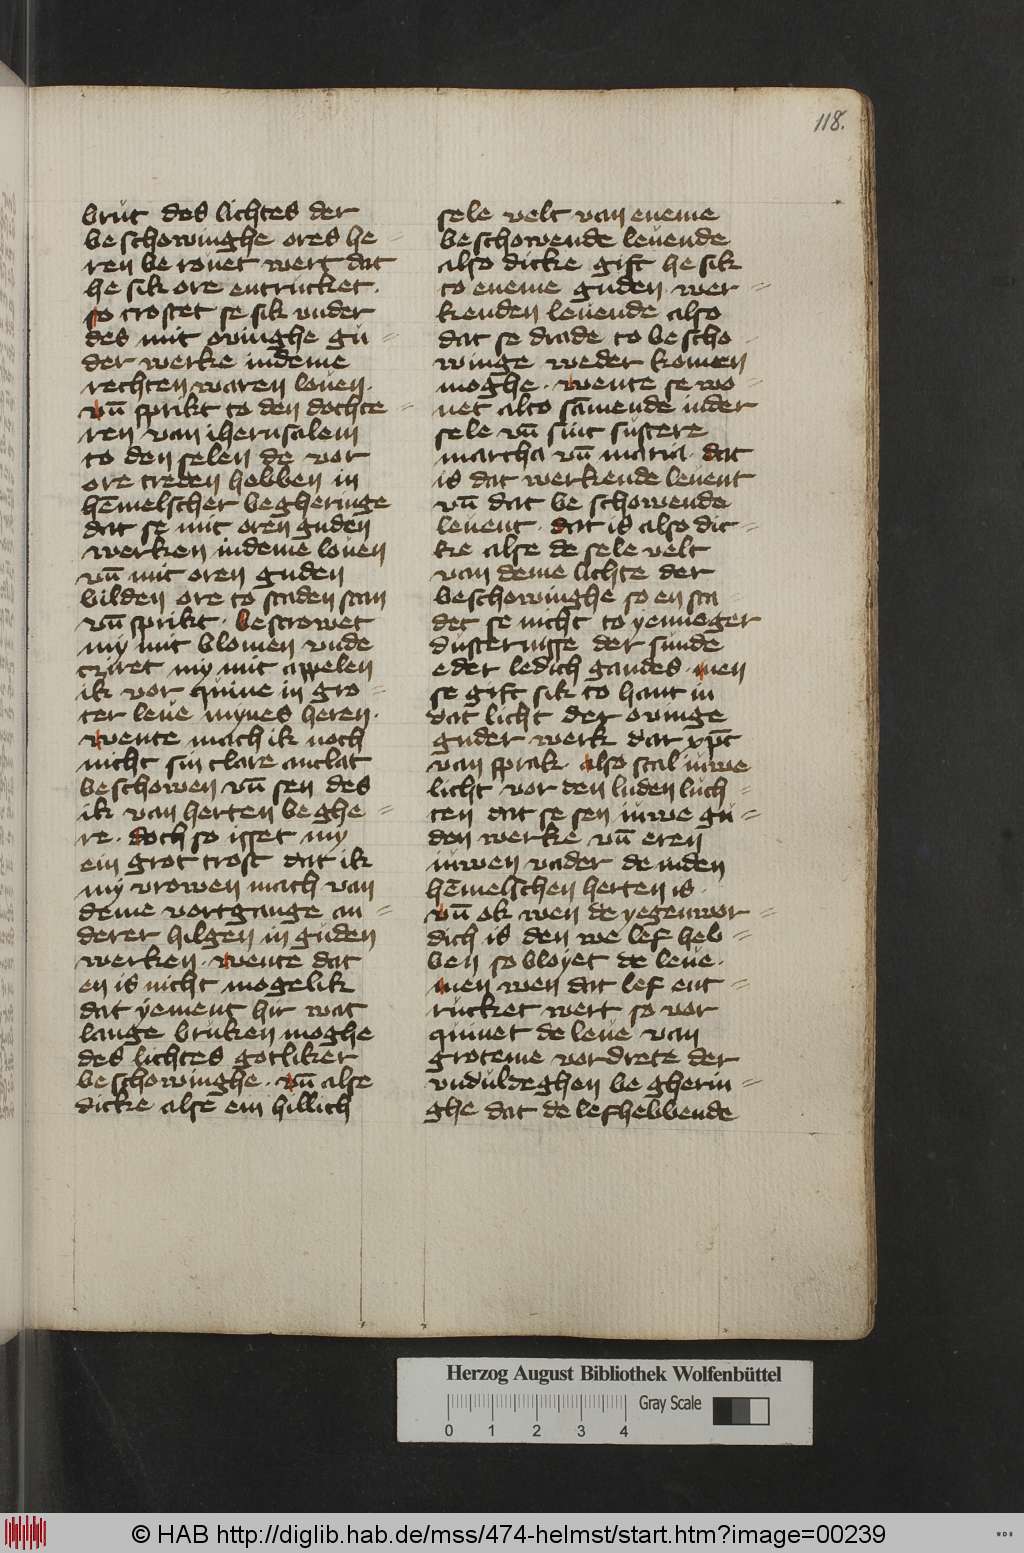 118.
brut des lichtes der
beschowinghe ores he-
ren berouet wert dat
he sik ore entrucket.
so trostet se sik vnder
des mit ovinghe gu-
der werke in deme
rechten waren louen.
vn̄ sprikt to den dochte-
ren van iherusalem
to den selen de vor
ore treden hebben in
hēmelscher begheringe
dat se mit oren guden
werken in deme louen
vn̄ mit oren guden
bilden ore to staden stan
vn̄ sprikt. bestrowet
my mit blomen vnde
tziret my mit appelen
ik vor quine in gro-
ter leue mynes heren.
wente mach ik noch
nicht sin clare antlat
beschowen vn̄ sen des
ik van herten beghe-
re. doch so isset my
ein grot trost dat ik
my vrowen mach van
deme vortgange an-
derer hilgen in guden
werken. wente dat
en is nicht mogelik
dat yement hir wat
lange bruken moghe
des lichtes gotliker
beschowinghe. vn̄ alse
dicke alse ein hillich
sele velt van eneme
beschowende leuende
also dicke gift he sik
to eneme guden wer-
kenden leuende also
dat se drade to bescho-
winge weder komen
moghe. wente se wo-
net alto sāmende in der
sele vn̄ sint sustere
martha vn̄ maria. dat
is dat werkende leuent
vn̄ dat beschowende
leuent. dat is also dic-
ke alse de sele velt
van deme lichte der
beschowinghe so en sta-
det se nicht to yenneger
dusternisse der sunde
eder ledich gandes. men
se gift sik to hant in
dat licht der ovinge
guder werk dar xp̄c
van sprak. also scal iuwe
licht vor den luden luch-
ten dat se sen iuwe gu-
den werke vn̄ eren
iuwen vader de in den
hēmelschen herten is.
vn̄ ok wen de yegenwor-
dich is den we lef heb-
ben so bloyet de leue.
men wen dat lef ent-
rucket wert so vor
quinet de leue van
groteme vordrete der
vnduldeghen begherin-
ghe dat de lefhebbende
Herzog August Bibliothek Wolfenbüttel
Gray Scale
0 1 2 3 4
© HAB http://diglib.hab.de/mss/474-helmst/start.htm?image=00239